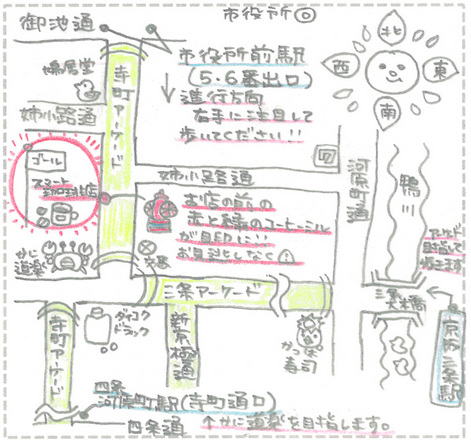 御池通
市役所◎
鳩居堂
寺町アーケード
市役所前駅
(5・6番出口)
進行方向
右手に注目して
歩いてください!!
北
西
東
南
姉小路通
ゴール
スマート
珈琲店
姉小路通
河原町通
鴨川
お店の前の
赤と緑のコーヒーミル
が目印に!!
お見逃しなく!
かに
道楽
交番
アーケード
目指して
歩きます
三条アーケード
三条大橋
寺町アーケード
ダイコク
ドラッグ
新京極通
かっぱ
寿司
京阪三条駅
四条
河原町駅(寺町通口)
四条通
かに道楽を目指します。